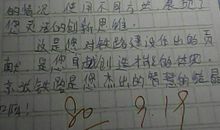 的情况，使用不同方式，展现了
您灵活的创新思维。
这是您对铁路建设作出的贡
献，是您自动创造才能的体现，
京张铁路是您杰出的智慧的结晶
啊！
80 9.19